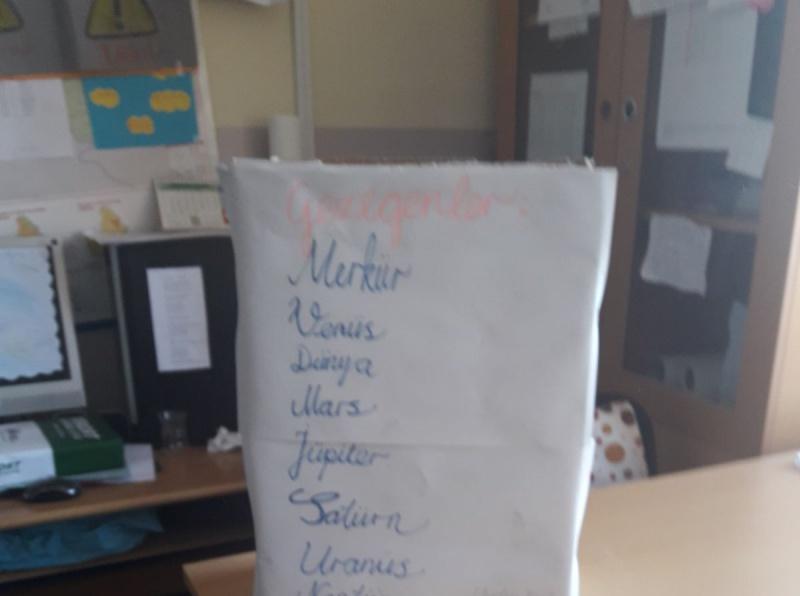 Gezegenler:
Merkür
Venüs
Dünya
Mars
Jüpiter
Satürn
Uranüs